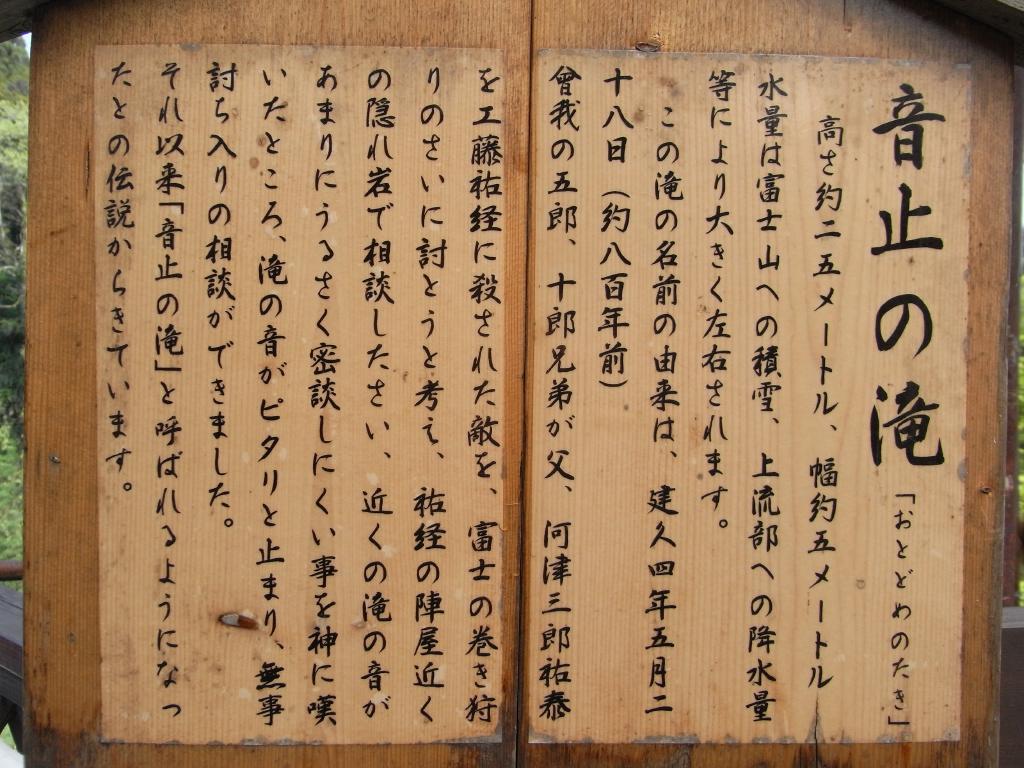 音止の滝「おとどめのたき」
高さ約二五メートル、幅約五メートル
水量は富士山への積雪、上流部への降水量
等により大きく左右されます。
この滝の名前の由来は、建久四年五月二
十八日(約八百年前)
曾我の五郎、十郎兄弟が父、河津三郎祐泰
を工藤祐経に殺された敵を、富士の巻き狩
りのさいに討とうと考え、祐経の陣屋近く
の隠れ岩で相談したさい、近くの滝の音が
あまりにうるさく密談しにくい事を神に嘆
いたところ、滝の音がピタリと止まり、無事
討ち入りの相談ができました。
それ以来「音止の滝」と呼ばれるようになっ
たとの伝説からきています。